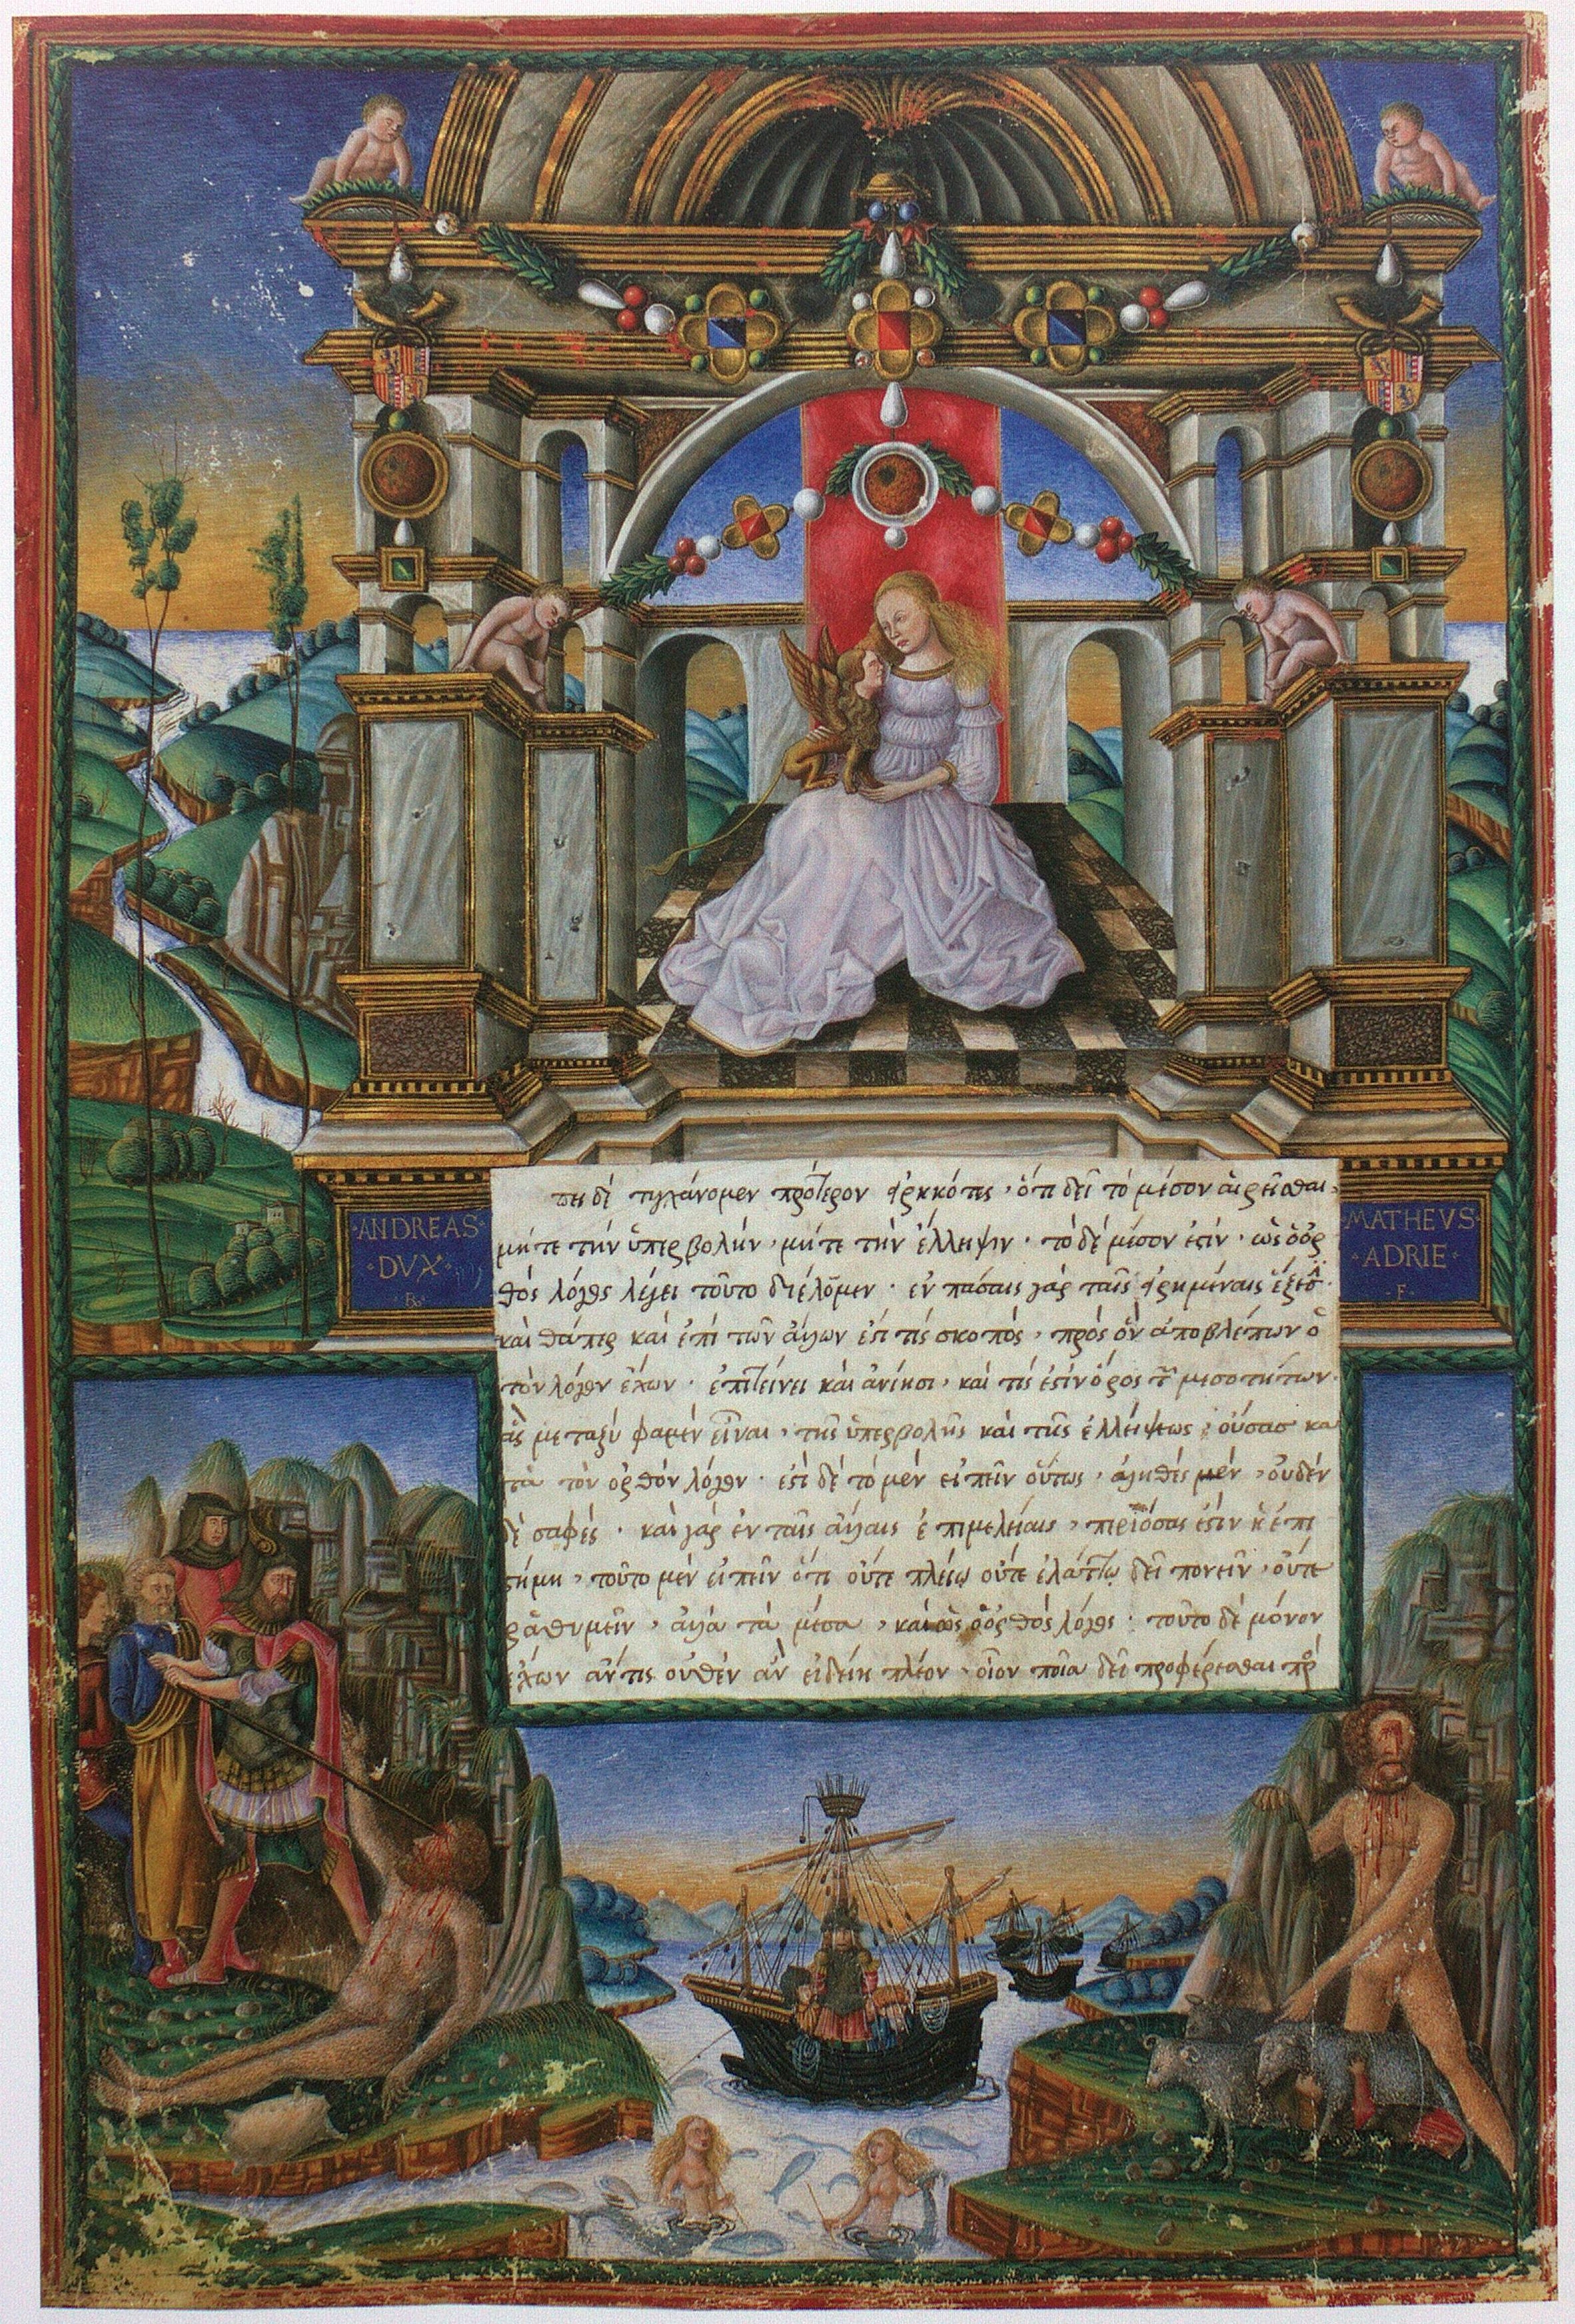 πει δὲ τυγχάνομεν πρότερον εἰρηκότες, ὅτι δεῖ τὸ μέσον αἱρεῖσθαι,
μήτε τὴν ὑπερβολὴν, μήτε τὴν ἔλλειψιν· τὸ δὲ μέσον ἐστὶν, ὡς ὁ ὀρ
θὸς λόγος λέγει τοῦτο διέλωμεν· ἐν πάσαις γὰρ ταῖς εἰρημέναις ἕξεσι·
καθάπερ καὶ ἐπὶ τῶν ἄλλων ἐστί τις σκοπὸς, πρὸς ὃν ἀποβλέπων ὁ
τὸν λόγον ἔχων· ἐπιτείνει καὶ ἀνίησι, καὶ τίς ἐστιν ὅρος τῶν μεσοτήτων·
ἃς μεταξύ φαμεν εἶναι, τῆς ὑπερβολῆς καὶ τῆς ἐλλείψεως, οὔσας κα
τὰ τὸν ὀρθὸν λόγον· ἐστὶ δὲ τὸ μὲν εἰπεῖν οὕτως, ἀληθὲς μὲν, οὐδὲν
δὲ σαφές· καὶ γὰρ ἐν ταῖς ἄλλαις ἐπιμελείαις, περὶ ὅσας ἐστὶν ἡ ἐπι
στήμη, τοῦτο μὲν εἰπεῖν ὅτι οὔτε πλείω οὔτε ἐλάττω δεῖ πονεῖν, οὔτε
ῥαθυμεῖν, ἀλλὰ τὰ μέσα, καὶ ὡς ὁ ὀρθὸς λόγος· τοῦτο δὲ μόνον
ἔχων ἄν τις οὐθὲν ἂν εἰδείη πλέον· οἷον ποῖα δεῖ προσφέρεσθαι πρὸ
·ANDREAS·
DVX·
·R·
·MATHEVS·
·ADRIE·
·F·